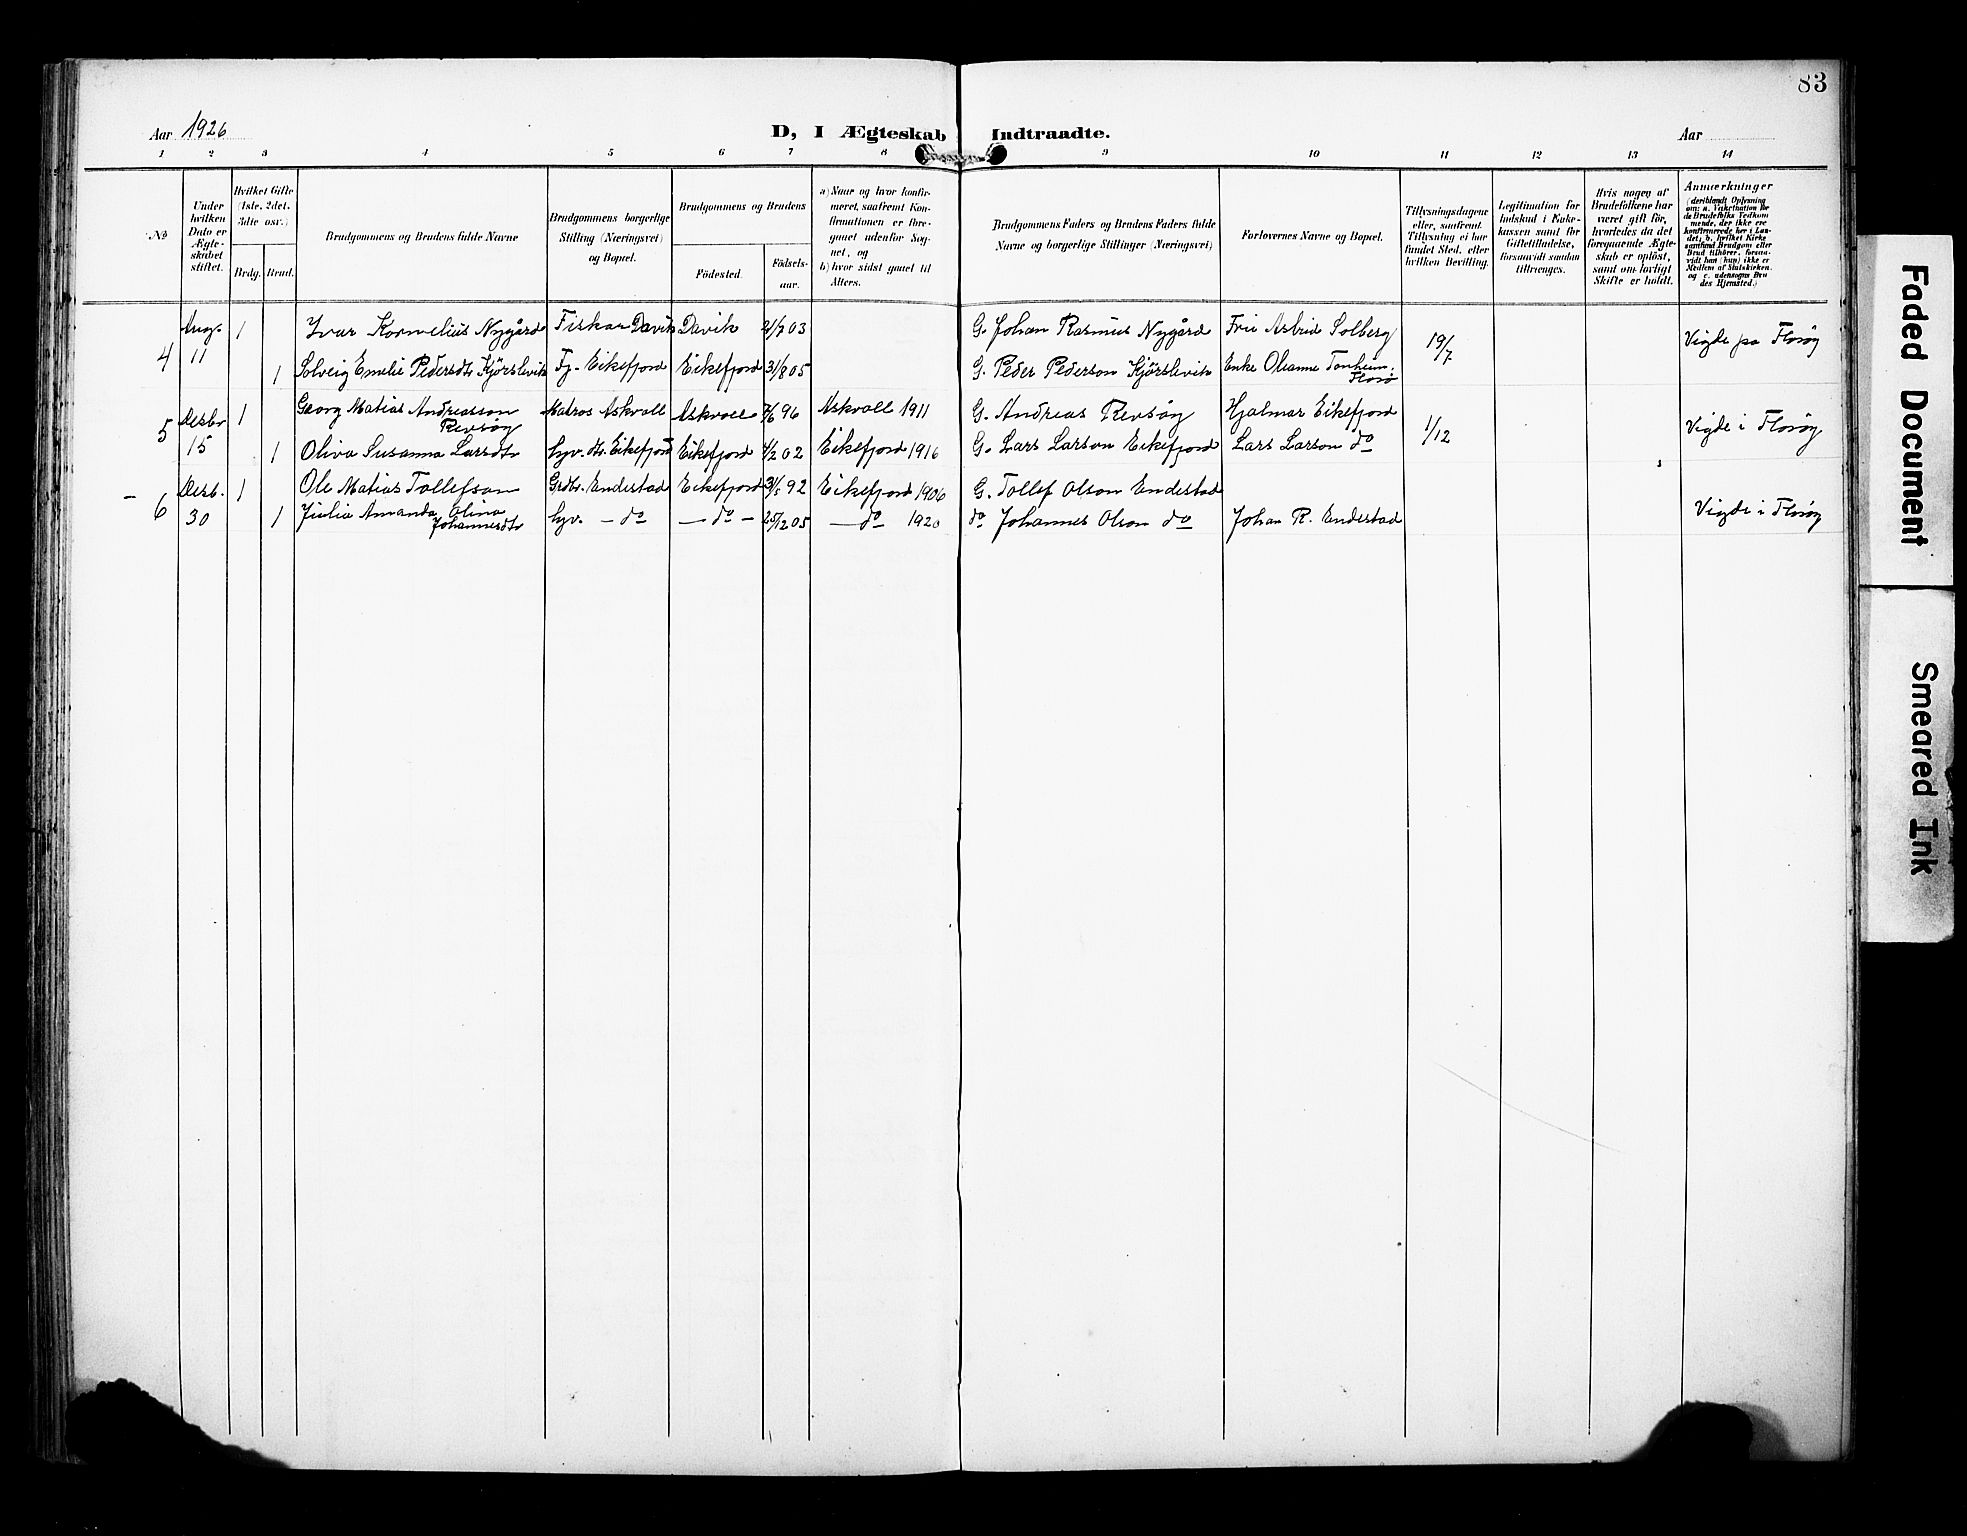 83
Aar 1926
D, I Ægteskab Indtraadte.
Aar
1 2 3 4 5 6 7 8 9 10 11 12 13 14
No
Under hvilken Dato er Ægteskabet stiftet.
Hvilket Gifte (1ste, 2det, 3die osv.)
Brdg. Brud.
Brudgommens og Brudens fulde Navne
Brudgommens borgerlige Stilling (Næringsvei) og Bopæl.
Brudgommens og Brudens
Födested.
Födselsaar.
a) Naar og hvor konfirmeret, saafremt Konfirmationen er foregaaet udenfor Sognet, og
b) hvor sidst gaaet til Alters.
Brudgommens Faders og Brudens Faders fulde Navne og borgerlige Stillinger (Næringsvei)
Forlovernes Navne og Bopæl.
Tillysningsdagene eller, saafremt Tillysning ei har fundet Sted, eller hvilken Bevilling.
Legitimation for Indskud i Enkekassen samt for Giftetilladelse, forsaavidt saadan tiltrænges.
Hvis nogen af Brudefolkene har været gift för, hvorledes da det foregaaende Ægteskab er oplöst, samt om lovligt Skifte er holdt.
Anmærkninger (deriblandt Oplysning om: a. Vaksination for de Brudefolks Vedkommende, der ikke ere konfirmerede her i Landet; b. hvilket Kirkesamfund Brudgom eller Brud tilhörer, forsaavidt han (hun) ikke er Medlem af Statskirken, og c. udensogns Brudes Hjemsted.)
4 Aug. 11 1 Ivar Kornelius Nygård Fiskar Davik Davik 21/7 03 G. Johan Rasmus Nygård Fru Astrid Solberg 19/7 Vigde pa Florøy
1 Solveig Emelie Pedersdtr Kjørslevik Fj. Eikefjord Eikefjord 31/8 05 G. Peder Pederson Kjørslevik Enke Oleanne Tonheim, Florø
5 Desbr 15 1 Georg Matias Andreasson Revsøy Matros Askvoll Askvoll 7/6 96 Askvoll 1911 G. Andreas Revsøy Hjalmar Eikefjord 1/12 Vigde i Florøy
1 Oliva Susanna Larsdtr hyv. dtr. Eikefjord Eikefjord 4/2 02 Eikefjord 1916 G. Lars Larson Eikefjord Lars Larson do
- 6 Desb. 30 1 Ole Matias Tollefson Grdbr. Endestad Eikefjord 31/5 92 Eikefjord 1906 G. Tollef Olson Endestad
1 Julia Amanda Olina Johannesdtr hyv. - do - do - 25/12 05 - do 1920 do Johannes Olson do Johan R. Endestad Vigde i Florøy
Faded Document
Smeared Ink